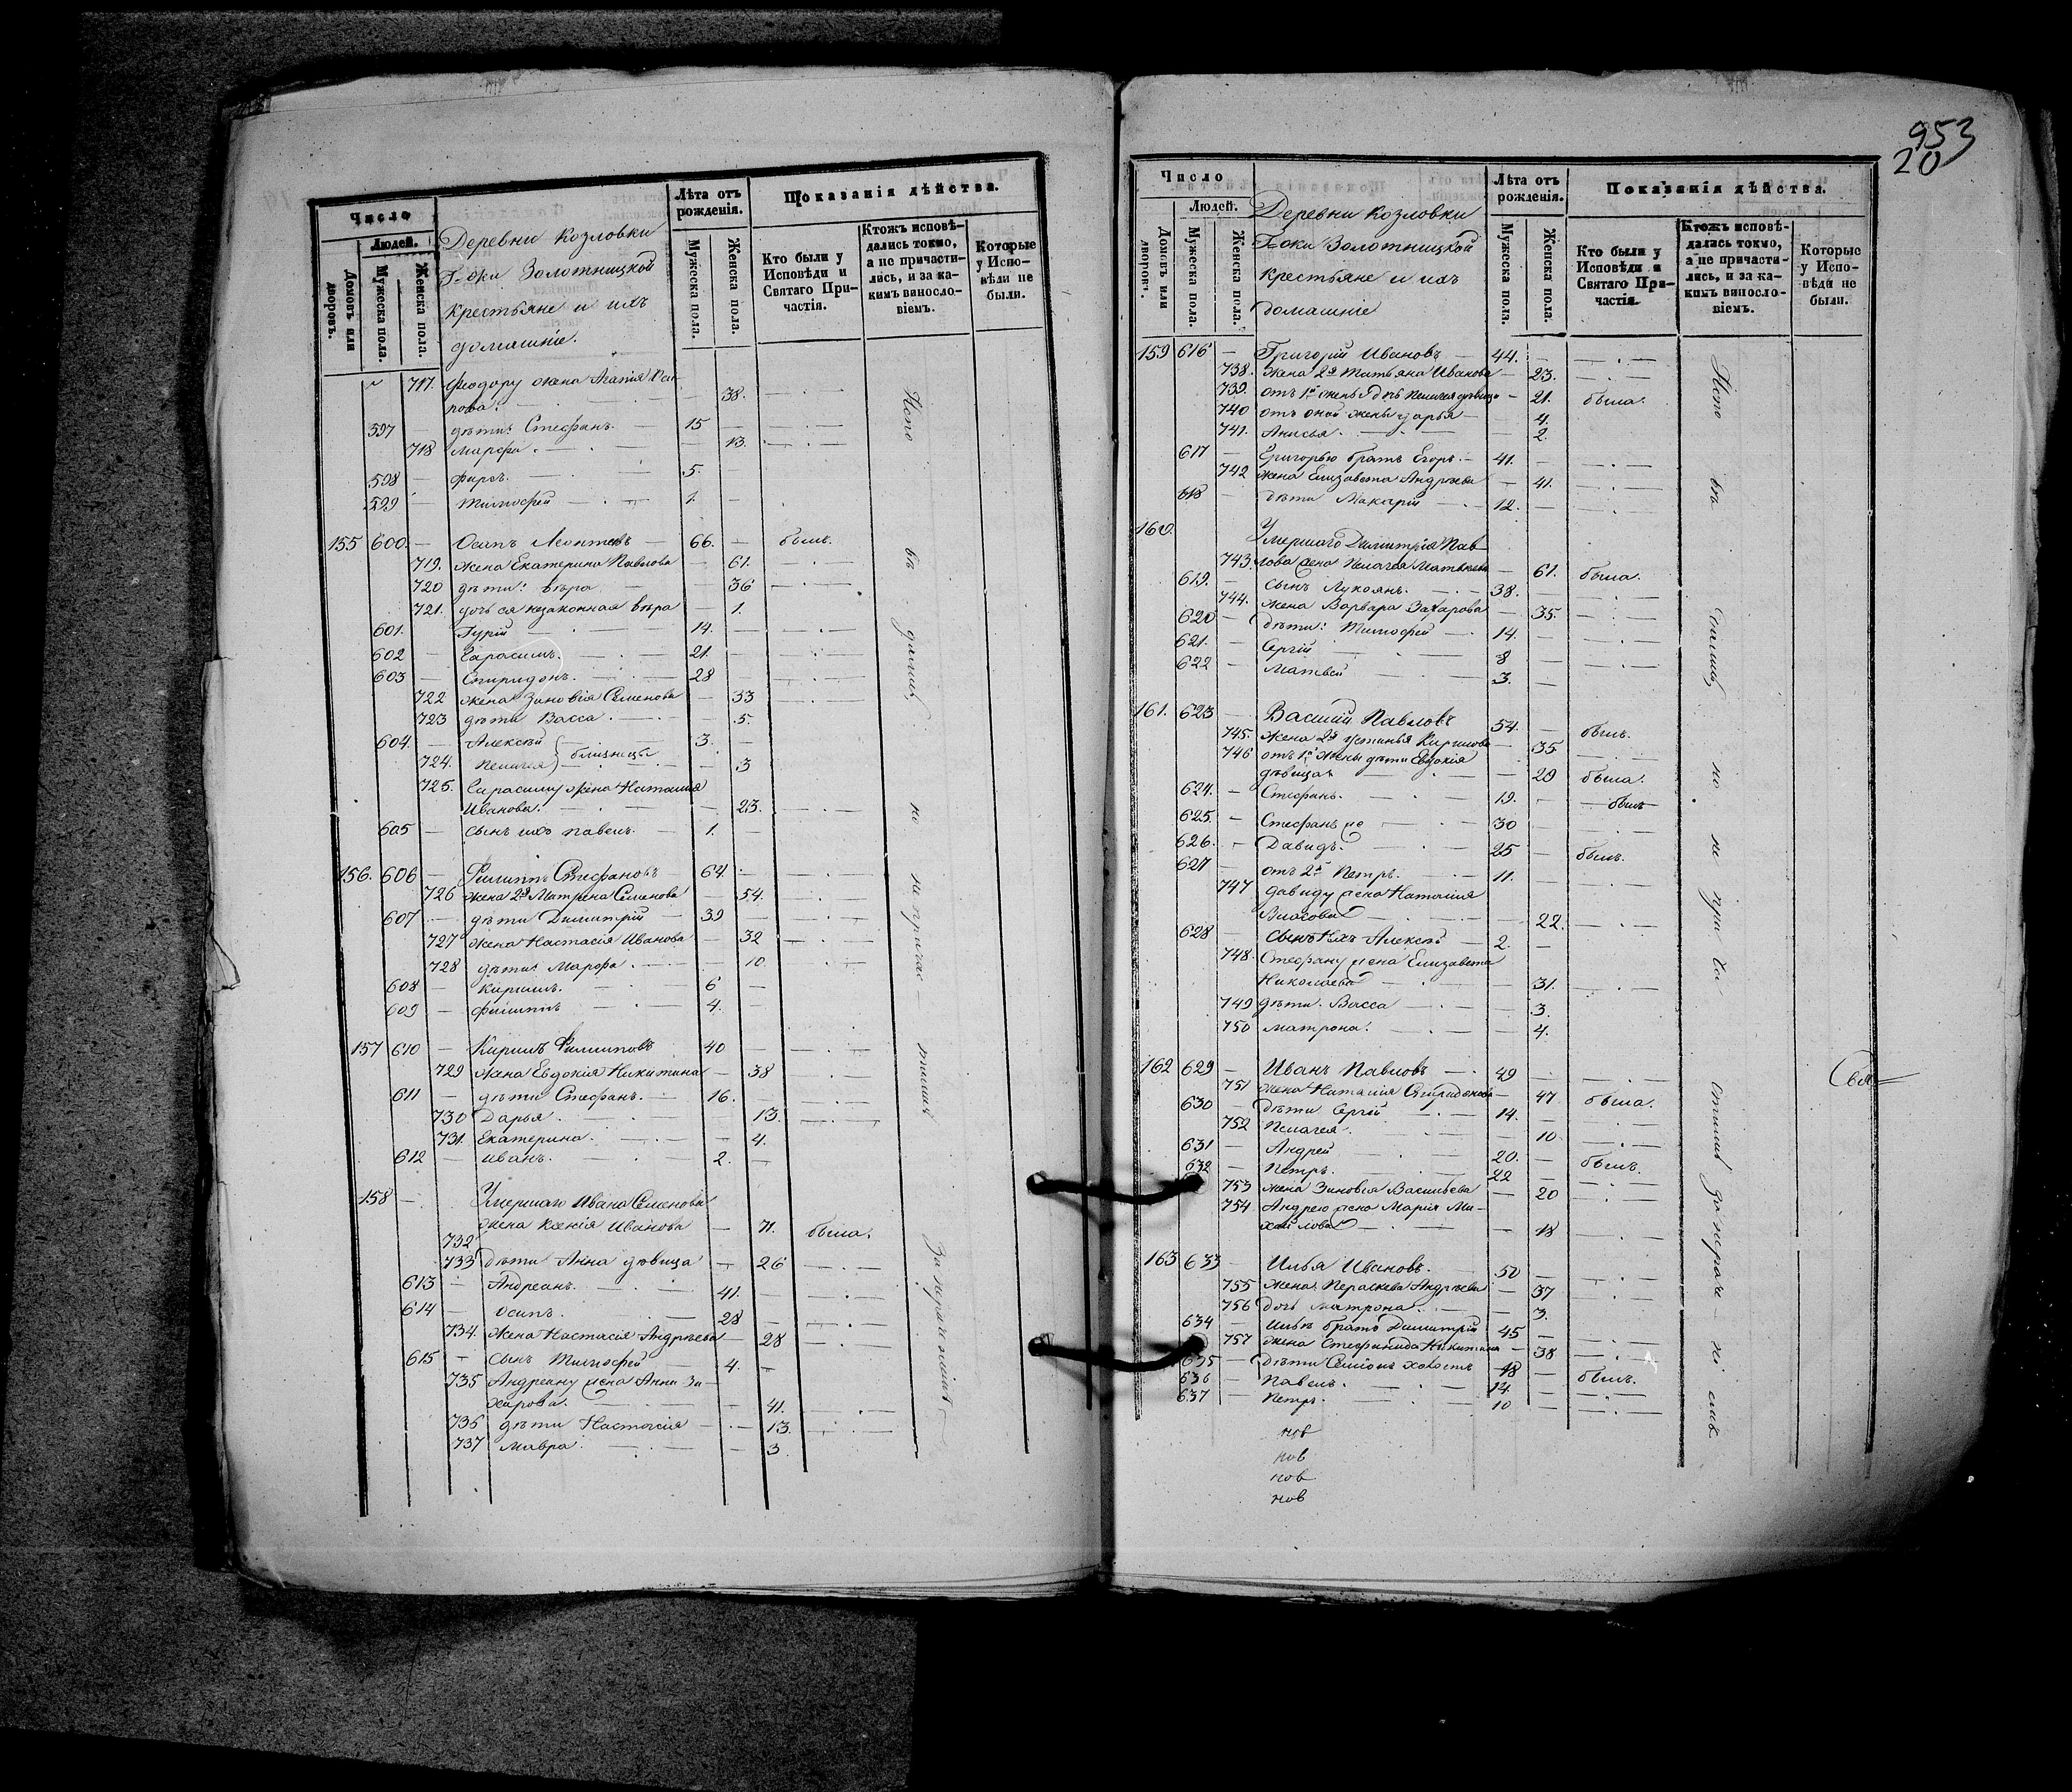 953
20
Число
Людей.
Домовъ или дворовъ.
Мужеска пола.
Женска пола.
Деревни Козловки
Г-жи Золотницкой
крестьяне и ихъ
домашніе.
Лѣта отъ рожденія.
Мужеска пола.
Женска пола.
Показанія дѣйства.
Кто были у Исповѣди и Святаго Причастія.
Ктожъ исповѣ-
дались токмо,
а не причасти-
лись, и за ка-
кимъ виносло-
віемъ.
Которые
у Испо-
вѣди не
были.
717. Ѳеодору жена Агапія
38.
597 — дѣти: Стефанъ. — 15 —
718 Марѳа. — 13.
598 — Фирсъ. — 5.
599 — Тимоѳей — 1. —
155 600. — Осипъ Леонтьевъ — 66. — былъ.
719. жена Екатерина Павлова — 61.
720 дѣти: Вѣра — 36
721. дочь ея незаконная Вѣра — 1.
601. Гурій — 14. —
602 — Гарасимъ. — 21. —
603 — Спиридонъ. — 28
722 жена Зиновія Семенова — 33
723 дѣти Васса. — 5.
604. — Алексѣй 3. —
724. Пелагея близнецы — 3
725. Гарасиму жена Наталія
Иванова. — 23.
605 — сынъ ихъ Павелъ. — 1. —
156. 606 — Филиппъ Стефановъ — 64.
726 жена 2я Матрена Семенова — 54.
607 — дѣти Димитрій — 39 —
727 жена Настасія Иванова — 32
728 дѣти Марѳа. — 10.
608 — Кирилъ. — 6 —
609 — Филиппъ — 4. —
157 610 — Кирилъ Филиповъ 40 —
729 жена Евдокія Никитина — 38
611 — дѣти Стефанъ. — 16. —
730 Дарья. — 13.
731. Екатерина. — 4.
612 — Иванъ. — 2. —
158 — Умершаго Ивана Семенова
732 жена Ксенія Иванова — 71. была.
733 дѣти Анна дѣвица — 26
613 — Андреанъ. — 41. —
614 — Осипъ. 28 —
734. жена Настасія Андреева — 28
615 — сынъ Тимоѳей — 4. —
735 Андреану жена Анна За-
харова. — 41.
736 дѣти Настасія — 13.
737 Мавра — 3
Число
Людей.
Домовъ или дворовъ.
Мужеска пола.
Женска пола.
Деревни Козловки
Г-жи Золотницкой
крестьяне и ихъ
домашніе
Лѣта отъ рожденія.
Мужеска пола.
Женска пола.
Показанія дѣйства.
Кто были у Исповѣди и Святаго Причастія.
Ктожъ исповѣ-
дались токмо,
а не причасти-
лись, и за ка-
кимъ виносло-
віемъ.
Которые
у Испо-
вѣди не
были.
159 616 — Григорій Ивановъ — 44. —
738. жена 2я Татьяна Иванова — 23.
739. отъ 1й жены дочь Пелагея дѣвица — 21. была.
740 отъ оной жены Дарья — 4.
741. Анисья. — 2.
617 — Григорью братъ Егоръ. — 41. —
742 жена Елизавета Андреева — 41.
618 — дѣти Макарій — 12. —
160. Умершаго Димитрія Пав-
743. лова жена Пелагея Матвеева — 61. была.
619. — сынъ Лукоянъ. — 38.
744. жена Варвара Захарова — 35.
620 — дѣти: Тимоѳей — 14. —
621. Сергій — 8 —
622 — Матвей — 3. —
161. 623 — Василій Павловъ 54. — былъ.
745. жена 2я Устинья Кирилова — 35
746 отъ 1й жены дѣти Евдокія
дѣвица — 20 была.
624. — Стефанъ. — 19. — былъ
625. — Стефанъ же — 30 —
626. — Давидъ. — 25 — былъ.
627 — отъ 2й Петръ. — 11. —
747 Давиду жена Наталия
Власова — 22.
628 — сынъ ихъ Алексѣй — 2. —
748. Стефану жена Елизавета
Николаева — 31.
749 дѣти. Васса — 3.
750 Матрона. — 4.
162 629 — Иванъ Павловъ — 49
751 жена Наталия Спиридонова — 47 была.
630 — дѣти Сергій — 14. —
752 Пелагея. — 10
631 — Андрей — 20. — былъ.
632 — Петръ. — 22 —
753 жена Зиновія Васильева — 20
754 Андрею жена Марія Ми-
хайлова — 18
163 633 — Илья Ивановъ. — 50 —
755 жена Пераскева Андреева — 37
756 дочь Матрона. — 3.
634 — Ильѣ братъ Димитрій 45 —
757 жена Стефанида Никитина — 38
635 — дѣти Семіонъ холостъ — 18 — былъ.
636 — Павелъ. — 14. —
637 — Петръ. — 10 —
нов
нов
нов
нов